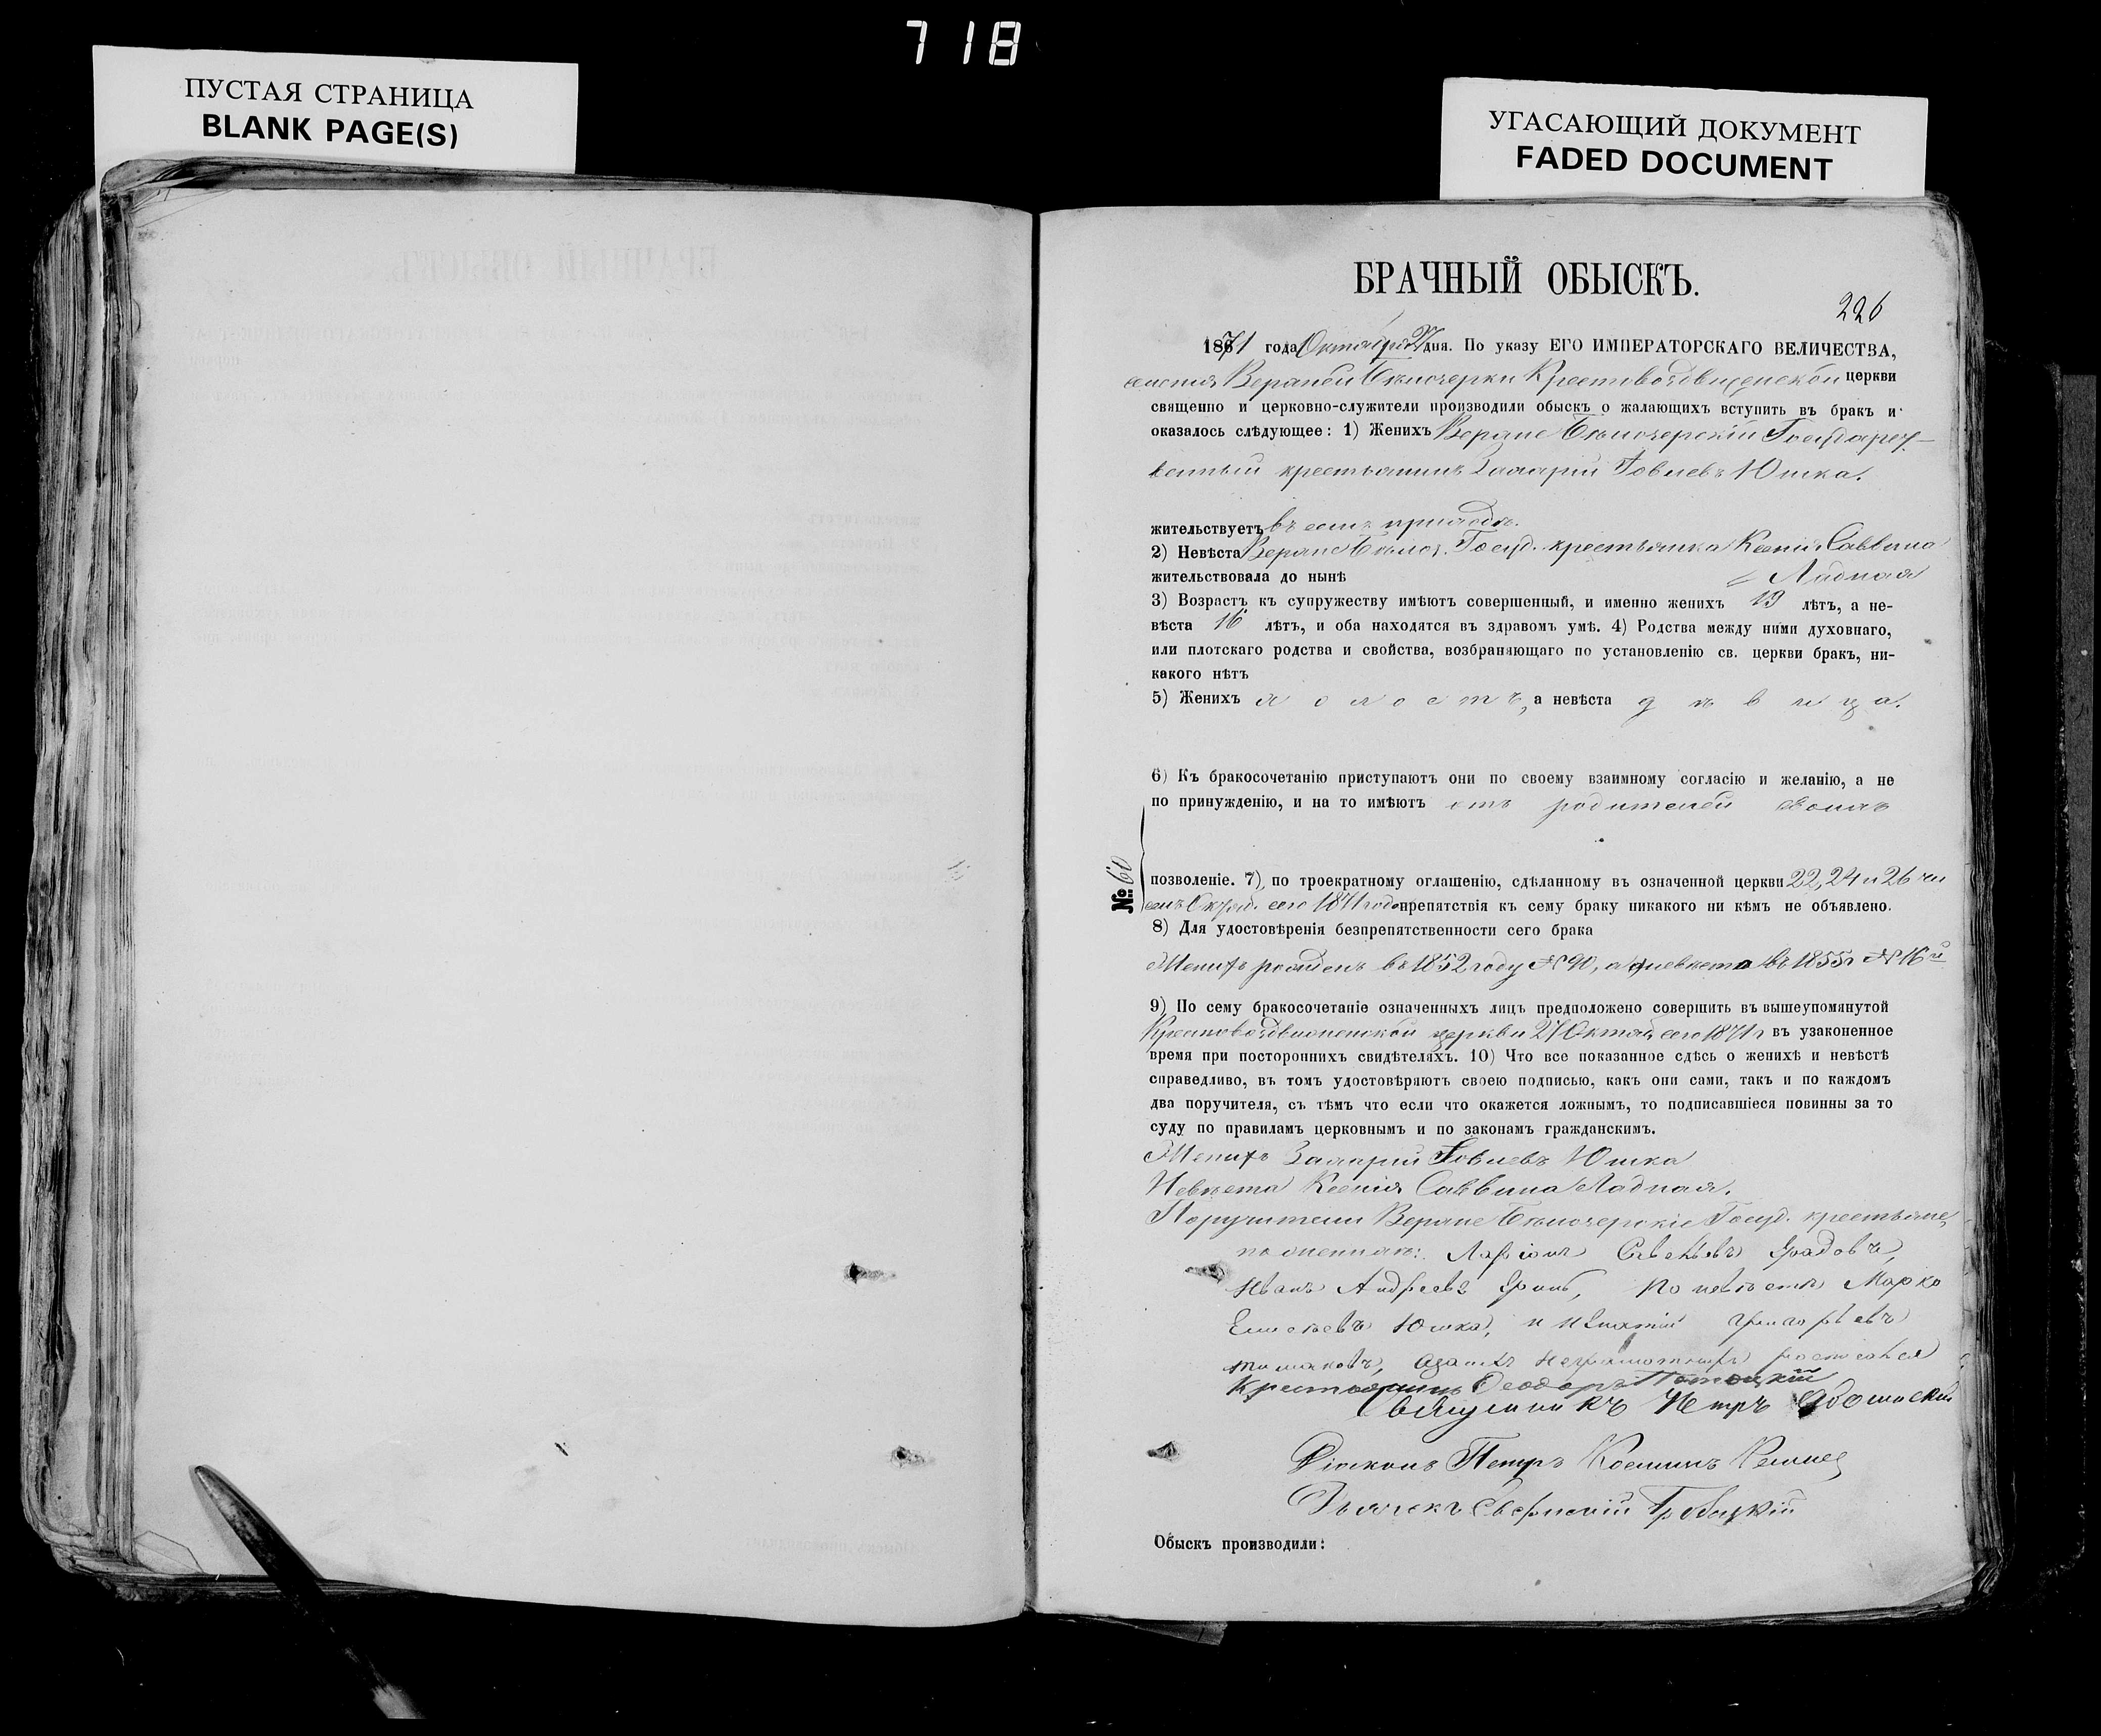 718
ПУСТАЯ СТРАНИЦА
BLANK PAGE(S)
УГАСАЮЩИЙ ДОКУМЕНТ
FADED DOCUMENT
БРАЧНЫЙ ОБЫСКЪ.
226
1871 года Октября 27 дня. По указу ЕГО ИМПЕРАТОРСКАГО ВЕЛИЧЕСТВА,
Крестовоздвиженской церкви
священно и церковно-служители производили обыскъ о жалающихъ вступить въ бракъ и
оказалось слѣдующее: 1) Женихъ Государст-
венный крестьянинъ Захарій Іовлевъ Юшка.
жительствуетъ въ семъ приходѣ.
2) Невѣста Госуд. крестьянка Ксенія Саввина
жительствовала до нынѣ Ладная
3) Возрастъ къ супружеству имѣютъ совершенный, и именно женихъ 19 лѣтъ, а не-
вѣста 16 лѣтъ, и оба находятся въ здравомъ умѣ. 4) Родства между ними духовнаго,
или плотскаго родства и свойства, возбраняющаго по установленію св. церкви бракъ, ни-
какого нѣтъ
5) Женихъ холостъ, а невѣста дѣвица.
6) Къ бракосочетанію приступаютъ они по своему взаимному согласію и желанію, а не
по принужденію, и на то имѣютъ отъ родителей своихъ
№: 60
позволеніе. 7) по троекратному оглашенію, сдѣланному въ означенной церкви 22, 24 и 26 чи
слъ Октяб. сего 1871 года препятствія къ сему браку никакого ни кѣмъ не объявлено.
8) Для удостовѣренія безпрепятственности сего брака
Женихъ рожденъ въ 1852 году № 90, а невѣста въ 1855 г № 16й
9) По сему бракосочетаніе означенныхъ лицъ предположено совершить въ вышеупомянутой
Крестовоздвиженской церкви 27 Октяб. сего 1871 г въ узаконенное
время при постороннихъ свидѣтеляхъ. 10) Что все показанное сдѣсь о женихѣ и невѣстѣ
справедливо, въ томъ удостовѣряютъ своею подписью, какъ они сами, такъ и по каждомъ
два поручителя, съ тѣмъ что если что окажется ложнымъ, то подписавшіеся повинны за то
суду по правиламъ церковнымъ и по законамъ гражданскимъ.
Женихъ Захарій Іовлевъ Юшка
Невѣста Ксенія Саввина Ладная.
Поручители Госуд. крестьяне,
по женихѣ: Ларіонъ
Иванъ Андреевъ по невѣстѣ Марко
Елисеевъ Юшка, и Игнатій Григорьевъ
неграмотныхъ росписался
Крестьянинъ Феодоръ
Священникъ Петръ
Діаконъ Петръ Косминъ
Дьячекъ
Обыскъ производили: